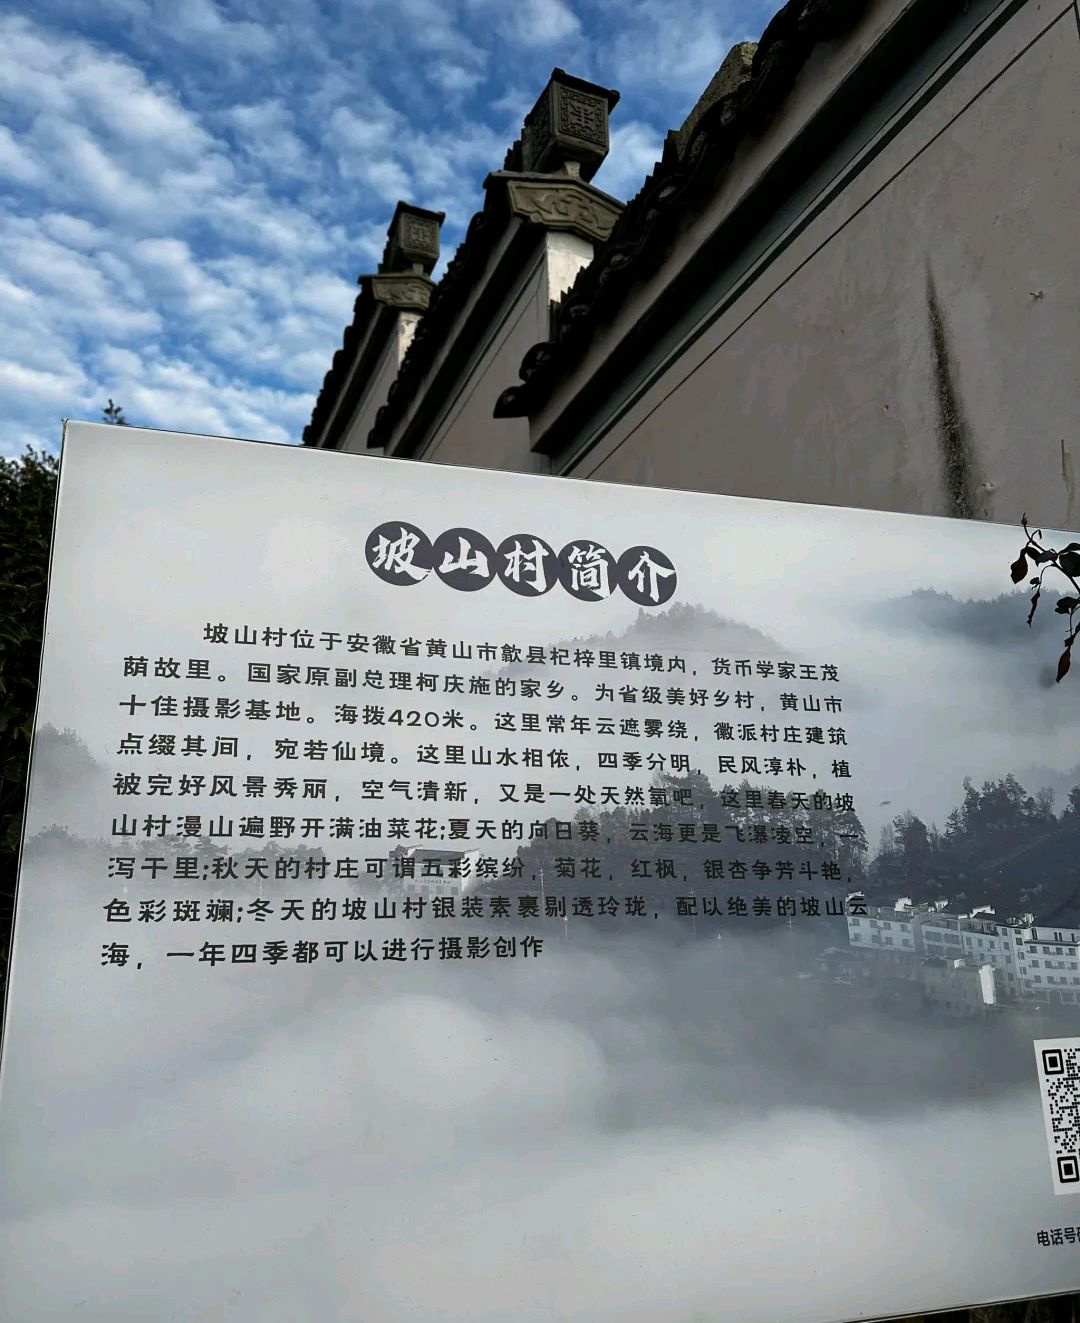 坡山村简介
坡山村位于安徽省黄山市歙县杞梓里镇境内，货币学家王茂
荫故里。国家原副总理柯庆施的家乡。为省级美好乡村，黄山市
十佳摄影基地。海拨420米。这里常年云遮雾绕，徽派村庄建筑
点缀其间，宛若仙境。这里山水相依，四季分明，民风淳朴，植
被完好风景秀丽，空气清新，又是一处天然氧吧，这里春天的坡
山村漫山遍野开满油菜花;夏天的向日葵，云海更是飞瀑凌空，一
泻千里;秋天的村庄可谓五彩缤纷，菊花，红枫，银杏争芳斗艳，
色彩斑斓;冬天的坡山村银装素裹剔透玲珑，配以绝美的坡山云
海，一年四季都可以进行摄影创作
电话号